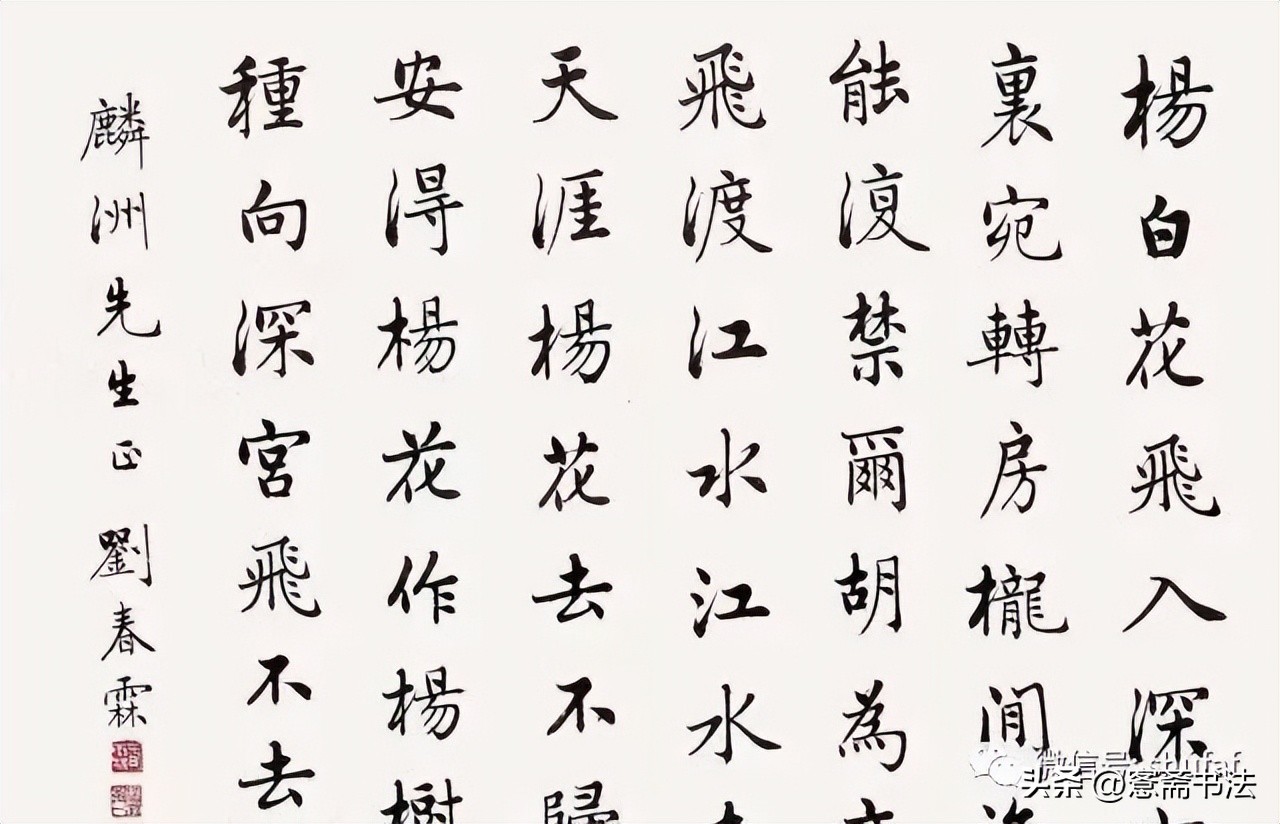 楊白花飛入深
裏宛轉房櫳間
能復禁爾胡為
飛渡江水江水
天涯楊花去不歸
安得楊花作楊樹
種向深宮飛不去
麟洲先生正 劉春霖
微信号: shufaf
头条 @愙斋书法